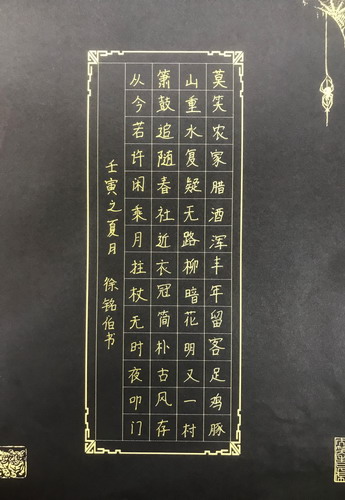 莫笑农家腊酒浑丰年留客足鸡豚
山重水复疑无路柳暗花明又一村
箫鼓追随春社近衣冠简朴古风存
从今若许闲乘月拄杖无时夜叩门
壬寅之夏月 徐铭伯书